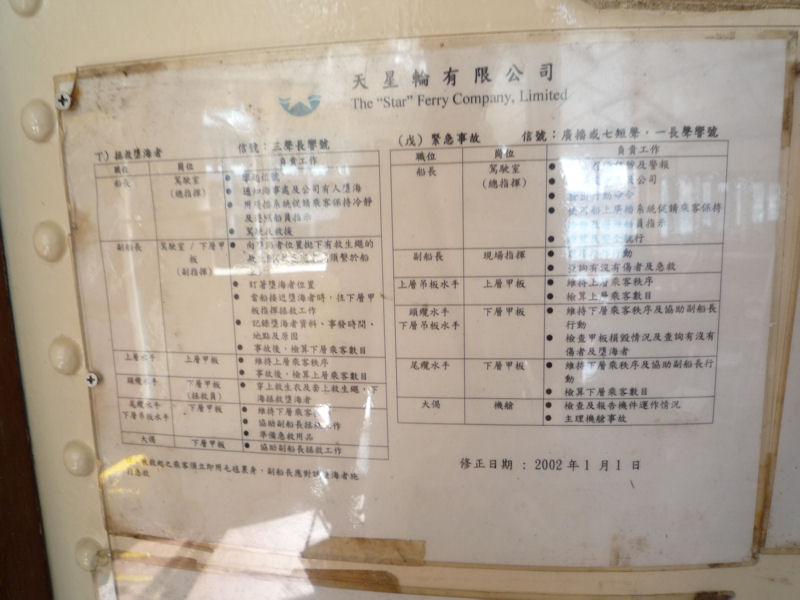 天星輪有限公司
The "Star" Ferry Company, Limited
丁) 拯救墮海者 信號：三聲長響號
職位 崗位 負責工作
船長 駕駛室 ● 響起信號
(總指揮) ● 通知海事處及公司有人墮海
● 用廣播系統促請乘客保持冷靜
及達致船員指示
● 駕駛救援
副船長 駕駛室 / 下層甲 ● 向墮海者位置拋下有救生繩的
板
(副指揮)
● 盯著墮海者位置
● 當船接近墮海者時，往下層甲
板指揮拯救工作
● 記錄墮海者資料、事發時間、
地點及原因
● 事故後，檢算下層乘客數目
上層水手 上層甲板 ● 維持上層乘客秩序
● 事故後，檢算上層乘客數目
頭纜水手 下層甲板 ● 穿上救生衣及套上救生繩，下
(拯救員) 海拯救墮海者
尾纜水手 下層甲板 ● 維持下層乘客
下層吊板水手 ● 協助副船長拯救工作
● 準備急救用品
大偈 下層甲板 ● 協助副船長拯救工作
救起之乘客須立即用毛毯裹身，副船長應對該墮海者施
行急救
(戊) 緊急事故 信號：廣播或七短聲，一長聲響號
職位 崗位 負責工作
船長 駕駛室 ● 及警報
(總指揮) ● 公司
●
● 使用船上廣播系統促請乘客保持
船員指示
● 航行
副船長 現場指揮 ● 行動
● 查詢有沒有傷者及急救
上層吊板水手 上層甲板 ● 維持上層乘客秩序
● 檢算上層乘客數目
頭纜水手 下層甲板 ● 維持下層乘客秩序及協助副船長
下層吊板水手 行動
● 檢查甲板損毀情況及查詢有沒有
傷者及墮海者
尾纜水手 下層甲板 ● 維持下層乘客秩序及協助副船長行
動
● 檢算下層乘客數目
大偈 機艙 ● 檢查及報告機件運作情況
● 主理機艙事故
修正日期 : 2002 年 1 月 1 日